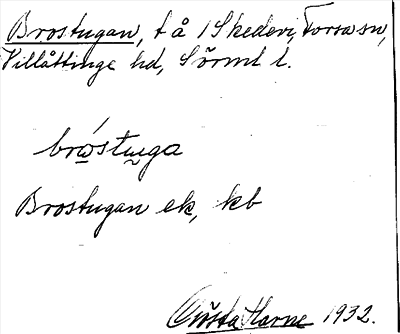 Brostugan, t å 1 Skedevi, Forssa sn,
Villåttinge hd, Sörml l.
brωstuga
Brostugan ek, kb
Gösta Harne 1932.